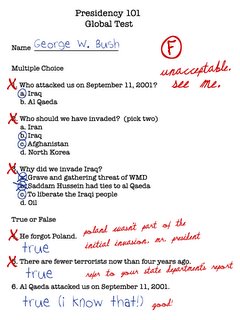 Presidency 101
Global Test
Name George W. Bush
F
unacceptable.
see me.
Multiple Choice
X Who attacked us on September 11, 2001?
a. Iraq
b. Al Qaeda
X Who should we have invaded? (pick two)
a. Iran
b. Iraq
c. Afghanistan
d. North Korea
X Why did we invade Iraq?
Grave and gathering threat of WMD
Saddam Hussein had ties to al Qaeda
c. To liberate the Iraqi people
d. Oil
True or False
X He forgot Poland.
true
poland wasn't part of the
initial invasion, mr. president
X There are fewer terrorists now than four years ago.
true
refer to your state departments report
6. Al Qaeda attacked us on September 11, 2001.
true (i know that!)
good!